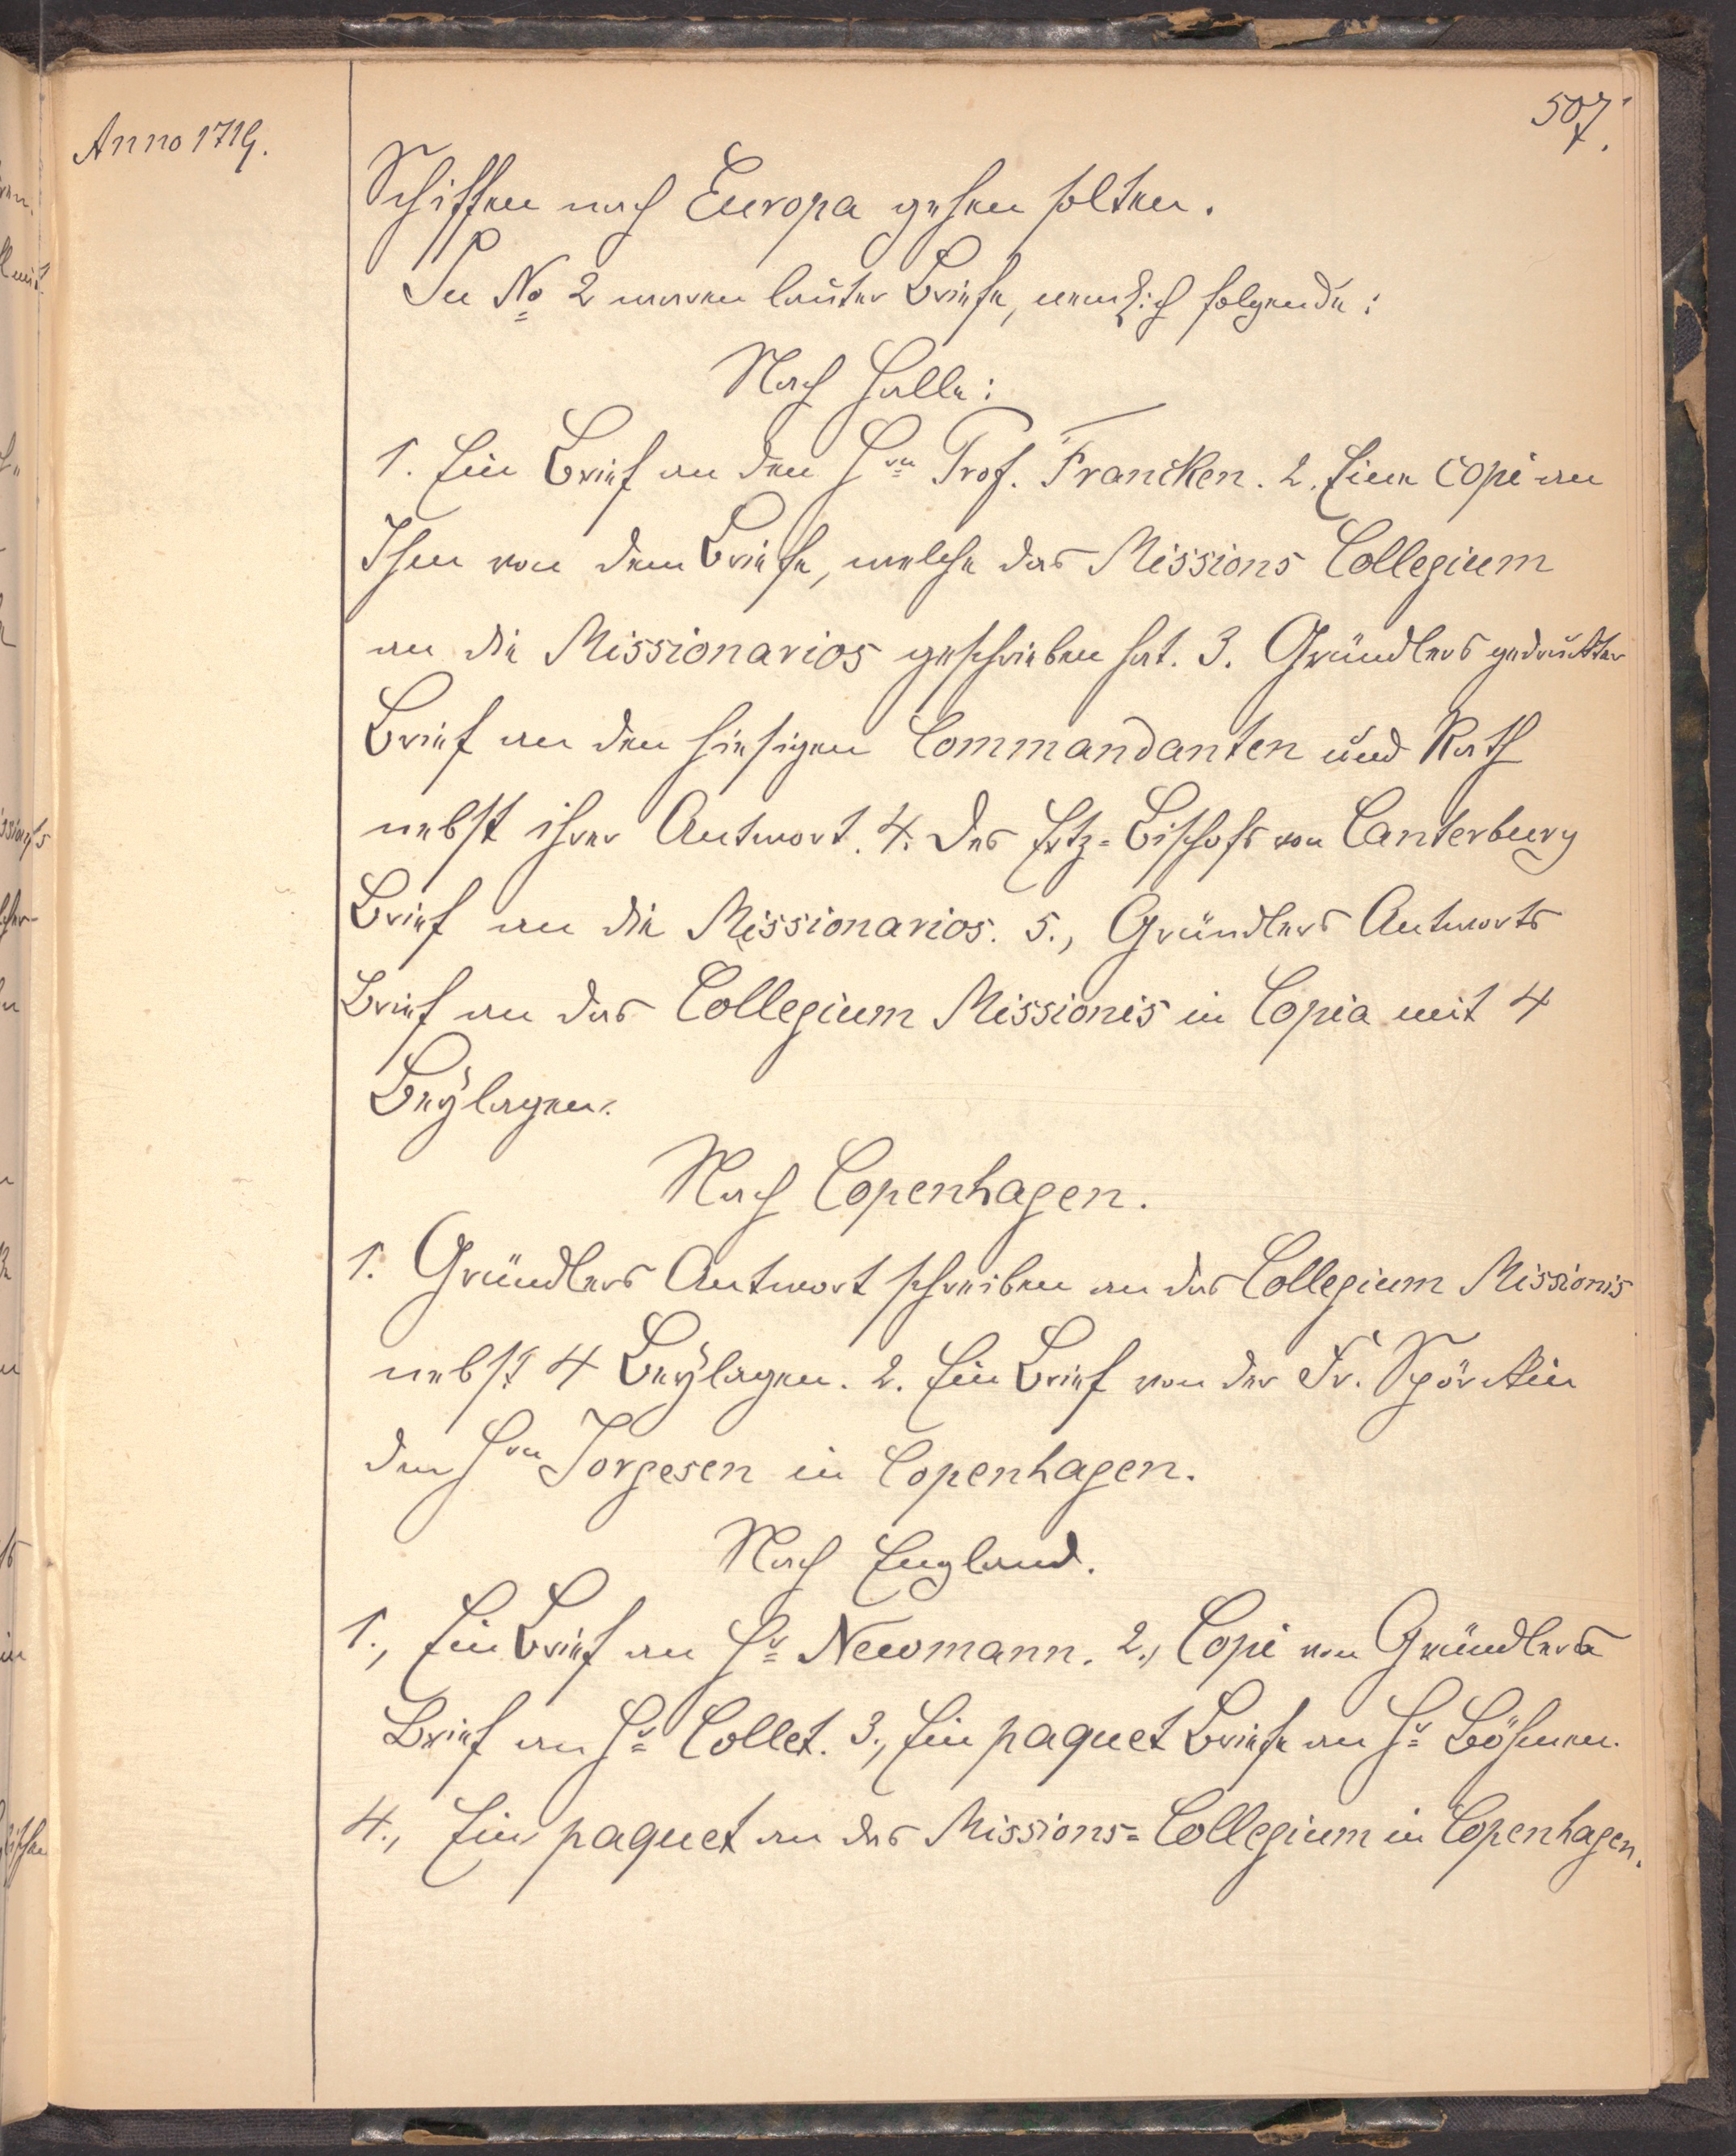 507.
Anno 1719.
Schiffen nach Europa gehen solten.
In No 2 waren lauter Briefe, nemlich folgende:
Nach Halle:
1. Ein Brief an den Hrn Prof. Francken. 2. Eine Copi an
Ihn von dem Briefe, welche das Missions Collegium
an die Missionarios geschrieben hat. 3. Gründlers gedruckter
Brief an den hiesigen Commandanten und Rath
nebst ihrer Antwort. 4. Des Ertz=Bischofs von Canterbury
Brief an die Missionarios. 5., Gründlers Antworts
Brief an das Collegium Missionis in Copia mit 4
Beÿlagen.
Nach Copenhagen.
1. Gründlers Antwort schreiben an das Collegium Missionis
nebst 4 Beÿlagen. 2. Ein Brief von der Fr.
den Hrn Jorgesen in Copenhagen.
Nach England.
1., Ein Brief an Hr Newmann. 2., Copi von Gründlers
Brief an Hr Collet. 3., Ein paquet Briefe an Hr Böhmen.
4., Ein paquet an das Missions=Collegium in Copenhagen.